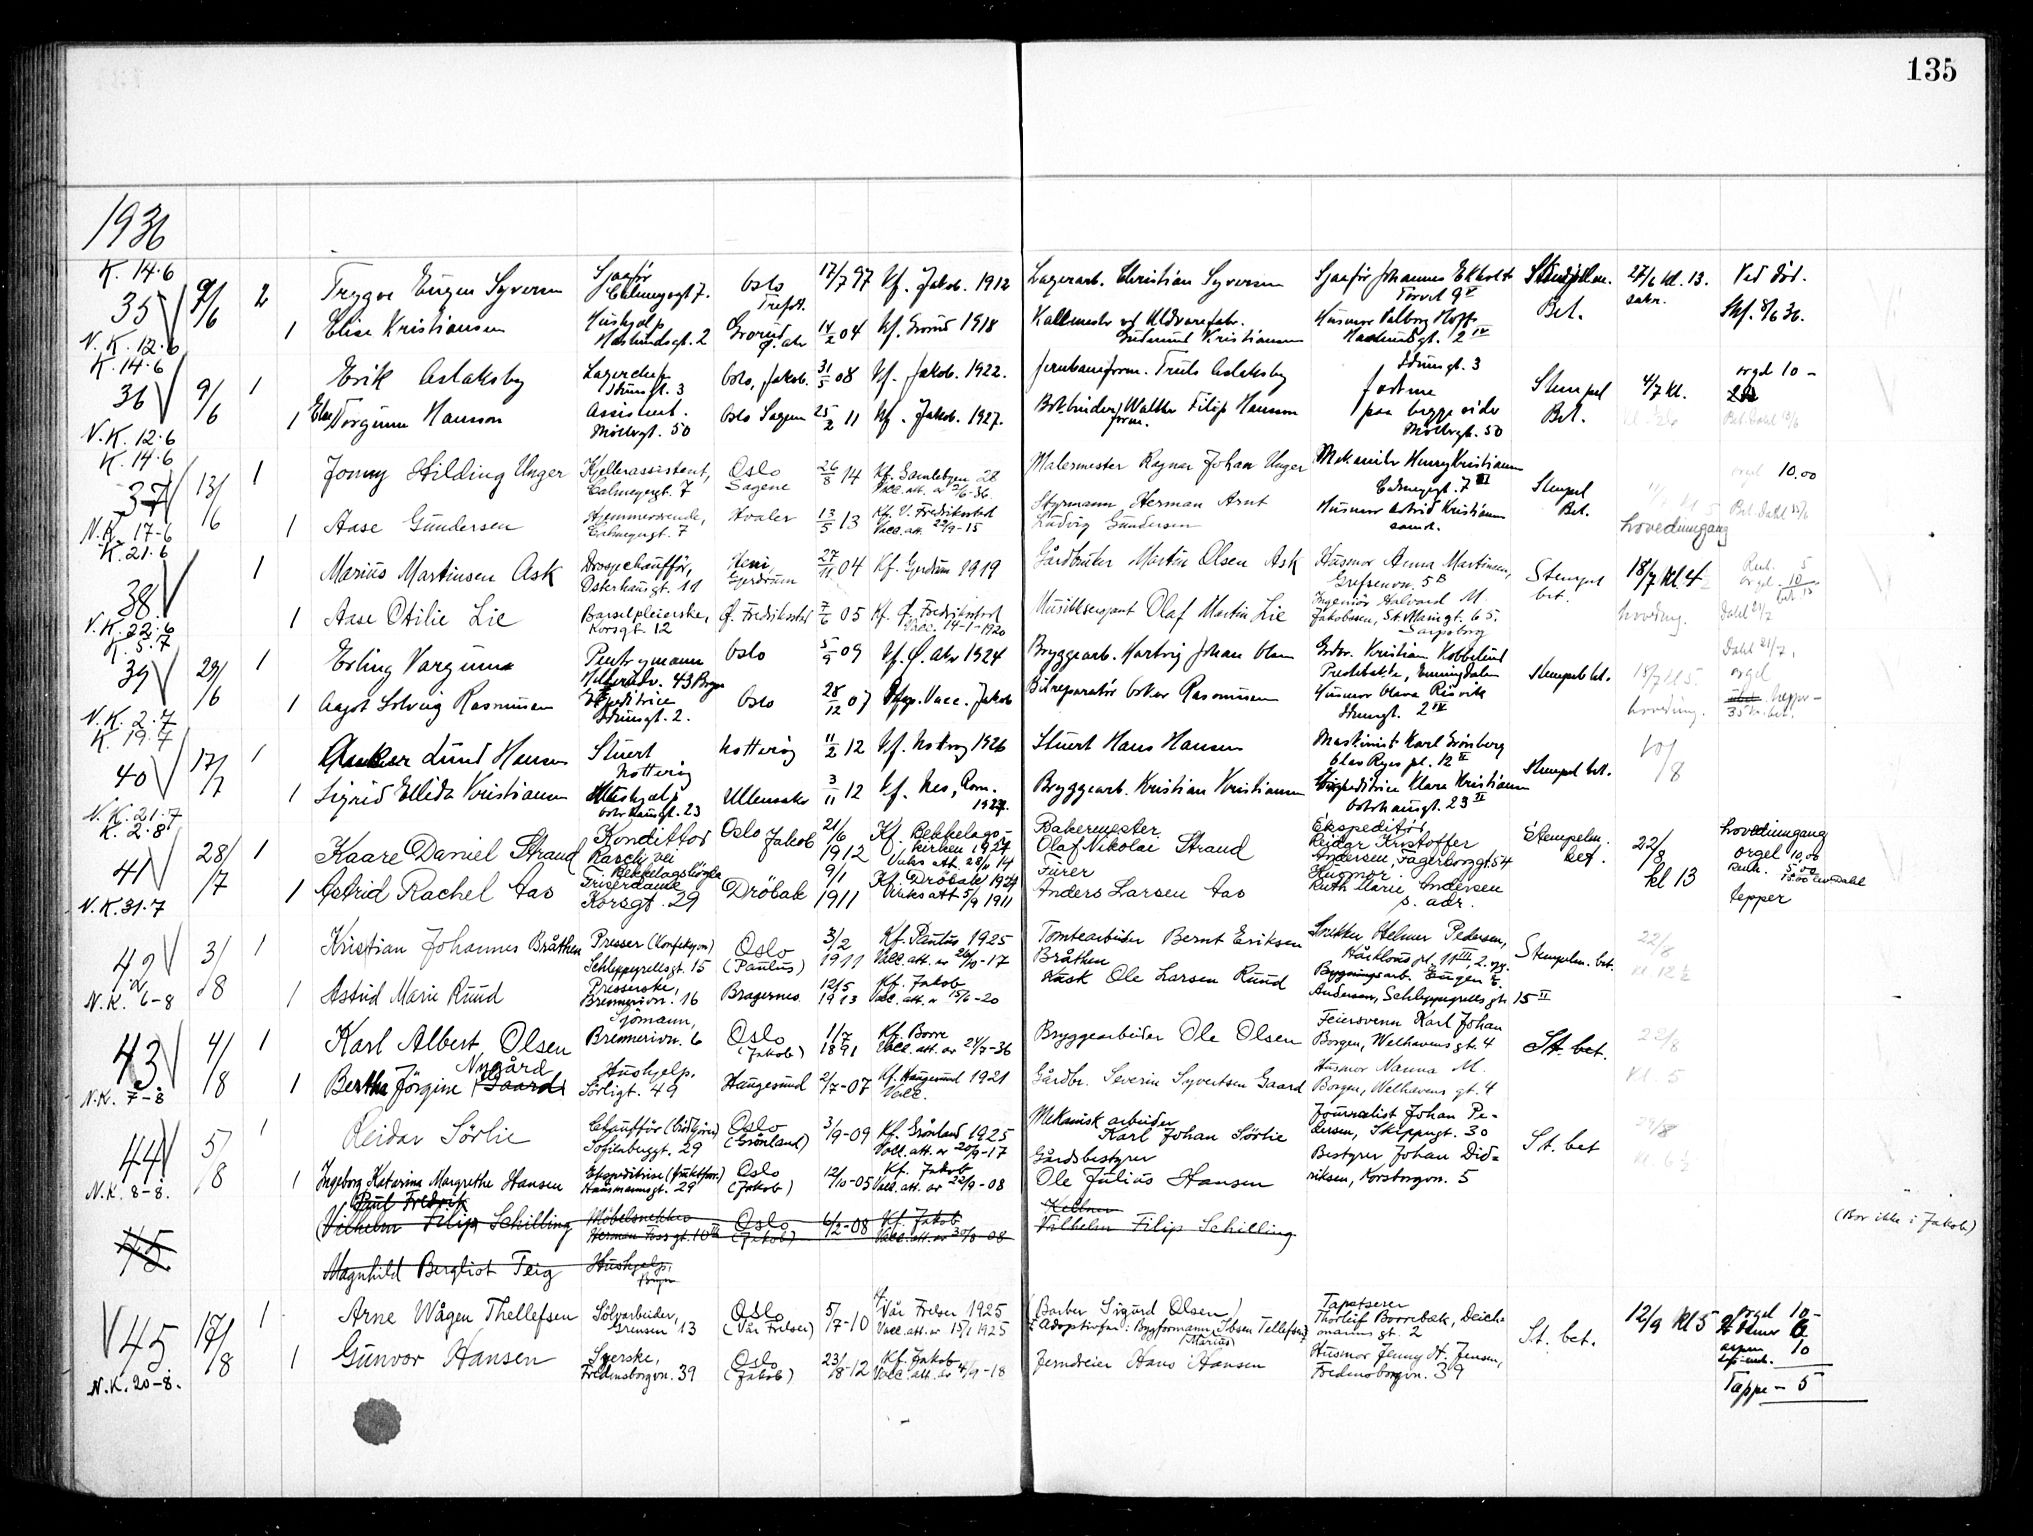 135
1936
K. 14.6
35 9/6 2 Trygve Eugen Syversen Sjaafør Calmeyergt 7. Oslo Treft. 17/7 97 Kf. Jakob. 1912 Lagerarb. Christian Syversen Sjaafør Johannes Ekholt Torvet 9 V Stempelm. Bet. 27/6 kl. 13. sakr. Ved død. Skf. 8/6 36.
N. K. 12.6 1 Elise Kristiansen Hushjelp Hauslundsgt. 2 Grorud Ø. Aker 14/2 04 Kf. Grorud 1918 Kallmester vd Uldvarefabr. Gudmund Kristiansen Husmor Valborg Hoff
K. 14.6
36 9/6 1 Erik Aslaksby Lagerchef Idunsgt. 3 Oslo, Jakob. 31/5 08 Kf. Jakob. 1922. Jernbaneform. Truls Aslaksby Idunsgt. 3 Stempel Bet. 4/7 kl. orgel 10 -
N.K. 12.6 1 (Else) Torgunn Hansson Assistent. Møllergt. 50 Oslo Sagene 25/2 11 Kf. Jakob. 1927. Bokbinderform. Walther Filip Hansson paa begge sider Møllergt. 50
K. 14.6
37 13/6 1 Jonny Hilding Unger Kjellerassistent, Calmeyergt. 7 Oslo Sagene 26/8 14 Kf. Gamlebyen 28 Vacc. att. av 5/6-36. Malermester Ragnar Johan Unger Mekaniker Henry Kristiansen Calmeyergt. 7 III Stempel Bet. orgel 10.00
N.K. 17-6 1 Aase Gundersen Hjemmeværende, Calmeyergt. 7 Hvaler 13/5 13 Kf. V. Fredrikstad Vacc. att. 29/9-15 Styrmann Herman Arnt Ludvig Gundersen Husmor Astrid Kristiansen samt. hovedinngang Bet. Dahl 15/6
K. 21.6
38 1 Marius Martinsen Ask Drosjechauffør, Osterhausgt. 11 Heni, Gjerdrum 27/11 04 Kf. Gjerdrum 1919 Gårdbruker Martin Olsen Ask Husmor Anna Martinsen, Grefsenvn. 5 B Stempel bet. 18/7 kl. 4 Rut. 5 orgel 10 bet 15
N.K. 22.6 1 Aase Otilie Lie Barselpleierske, Korsgt. 12 Ø. Fredrikstad 7/6 05 Kf. Ø. Fredrikstad Vacc. 14-1-1920 Musikksersjant Olaf Martin Lie Ingeniør Halvard M. Jakobsen, St. Mariegt. 65. Sarpsborg hoveding. Dahl 24/7
K. 5.7
39 29/6 1 Erling Vargum Pentrymann Oslo 5/9 09 Kf. Ø. Aker 1924 Bryggearb. Hartvig Johan Olsen Grdbr. Kristian Kobbelund Prestebakke, Enningdalen Stempel bet. 18/7 kl 5 Dahl 21/7, orgel
N.K. 2.7 1 Aagot Solveig Rasmussen Ekspeditrice Idunsgt. 2. Oslo 28/12 07 Vacc. Jakob Bilreparatør Oskar Rasmussen Husmor Olava Risvik Idunsgt. 2 IV hoveding. tepper - 35 kr. bet.
K. 19.7
40 17/7 1 Anker Lund Hansen Stuert Nøtterøy Nøtterøy 11/2 12 Kf. Nøtterøy 1926 Stuert Hans Hansen Maskinist Karl Grønberg Olav Ryes pl. 12 II Stempel bet. 10/8
N.K. 21.7 1 Sigrid Ellida Kristiansen Hushjelp Osterhausgt. 23 Ullensaker 3/11 12 Kf. Nes, Rom. 1927. Bryggearb. Kristian Kristiansen Ekspeditrice Klara Kristiansen Osterhausgt. 23 II
K. 2.8
41 28/7 1 Kaare Daniel Strand Konditor Raschs vei Bekkelagshøgda Oslo Jakob 21/6 1912 Kf. Bekkelagskirken 1927 Vaks. Att. 28/11 14 Bakermester Olaf Nikolai Strand Ekspeditør Reidar Kristoffer Andersen, Fagerborggt. 54 Stempelm. bet. 22/8 kl 13 hovedinngang orgel 10,00 Rut. 5.00 15.00
N.K. 31.7 1 Astrid Rachel Aas Friserdame Korsgt. 29 Drøbak 9/1 1911 Kf. Drøbak 1929 Vaks att 5/9 1911 Fører Anders Larsen Aas Husmor Ruth Marie Andersen s. adr. tepper
42 3/8 1 Kristian Johannes Bråthen Presser (Konfeksjon) Schleppegrellsgt. 15 Oslo (Paulus) 3/2 1911 Kf. Paulus 1925 Vacc. att. av 26/10-17 Tomtearbeider Bernt Eriksen Bråthen Snekker Helmer Pedersen, Hårklous pl. 11 III, 2. opg. Stempelm. bet. 22/8 kl. 12 ½
N.K. 6-8 1 Astrid Marie Ruud Presserske, Brenneriven. 16 Bragernes 12/5 1913 Kf. Jakob Vac. att. av 15/6-20 Vask Ole Larsen Ruud Bygningsarb. Eugen E. Andersen, Schleppegrells gt. 15 II
43 4/8 1 Karl Albert Olsen Sjømann, Brenneriven. 6 Oslo (Jakob) 1/7 1891 Kf. Borre Vacc. att. av 24/7-36 Bryggearbeider Ole Olsen Feiersvenn Karl Johan Borgen, Welhavens gt. 4 St. bet. 22/8
N.K. 7-8 1 Bertha Jørgine Nygård (Gaard) Hushjelp. Sørligt. 49 Haugesund 2/7-07 Kf. Haugesund 1921 Vacc. Gårdbr. Severin Syvertsen Gaard Husmor Nanna M. Borgen, Welhavens gt. 4 kl. 5
44 5/8 1 Reidar Sørlie Chauffør (Lidhjem) Sofienberggt. 29 Oslo (Grønland) 3/9-09 Kf. Grønland 1925 Vacc. att. av 20/9-17 Mekanisk arbeider Karl Johan Sørlie Journalist Johan Pedersen, Skippergt. 30 St. bet 29/8
N.K. 8-8. 1 Ingeborg Katarina Margrethe Hansen Ekspeditrise (fruktforr.) Hausmannsgt. 29 Oslo (Jakob) 12/10-05 Kf. Jakob Vacc. att. av 22/9-08 Gårdsbestyrer Ole Julius Hansen Bestyrer Johan Didriksen, Korsborgvn. 5 kl. 6 ½
45 (Paul Fredrik Vilhelm Filip Schilling Møbelsnekker Herman Foss gt. 10 Oslo (Jakob) 6/2-08 Kf. Jakob Vacc. att. av 30/8-08 Kelner Vilhelm Filip Schilling (Bor ikke i Jakob)
Magnhild Bergliot Teig Hushjelp,
45 17/8 1 Arne Wågen Thellefsen Sølvarbeider, Grensen 13 Oslo (Vår Frelser) 5/7-10 Vår Frelser 1925 Vacc. att. av 15/1 1925 (Barber Sigurd Olsen) Adoptivfar: Byggformann Ibsen Tellefsen Tapetserer Thorleif Borrebæk, Deichmanns gt. 2 St. bet. 12/9 kl 5 orgel 10-
N.K. 20-8. 1 Gunvor Hansen Syerske, Fredensborgvn. 39 Oslo (Jakob) 23/8-12 Kf. Jakob Vacc. att. av 4/9-18 Jerndreier Hans (Marius) Hansen Husmor Jenny H. Jensen, Fredensborgvn. 39 10
Tæppe - 5